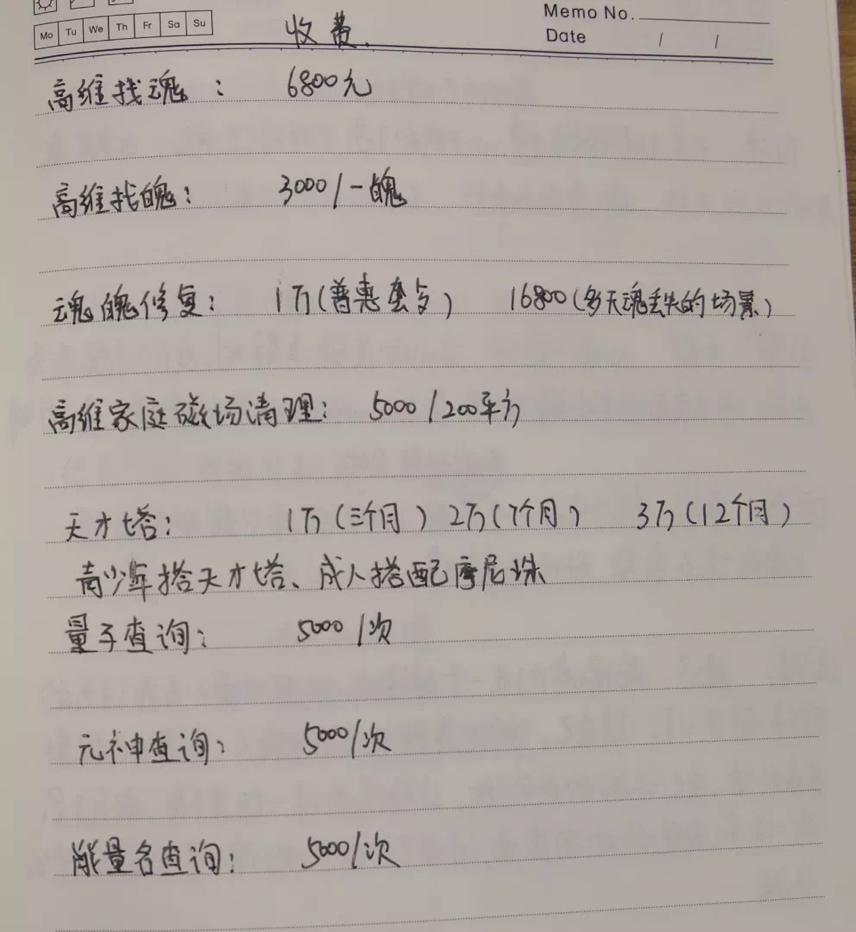 Mo Tu We Th Fr Sa Su
Memo No.
Date / /
收费.
高维找魂： 6800元
高维找魄： 3000/一魄
魂魄修复： 1万(普惠套餐) 16800(多天魂丢失的场景)
高维家庭磁场清理： 5000/200平方
天才塔： 1万(三个月) 2万(7个月) 3万(12个月)
青少年搭天才塔、成人搭配摩尼珠
量子查询： 5000/次
元神查询： 5000/次
能量名查询： 5000/次